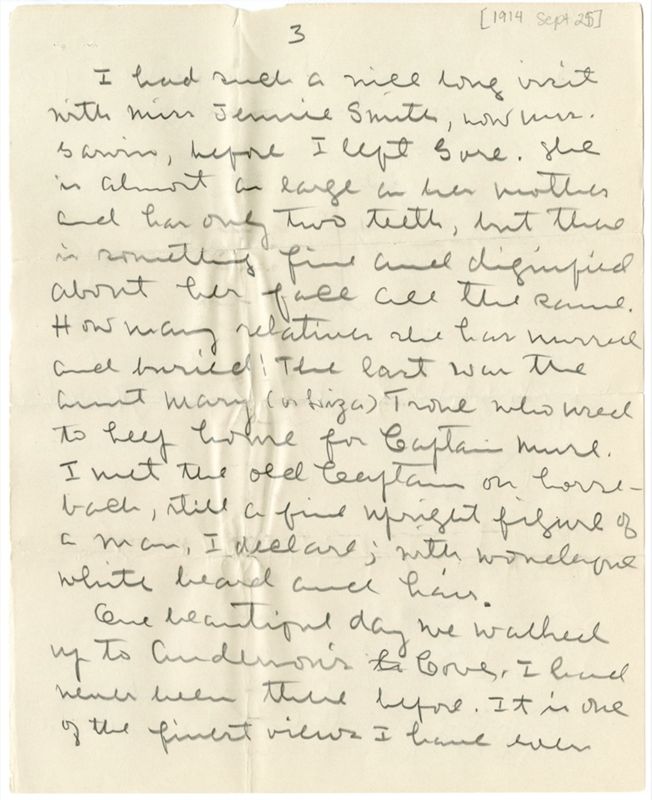 [1914 Sept 25]
3
I had such a nice long visit
with Miss Jennie Smith, now Mrs.
before I left Gore. She
is almost as large as her mother
and has only two teeth, but there
is something fine and dignified
about her face all the same.
How many relatives she has nursed
and buried! The last was the
aunt Mary (or Liza) Trone who used
to keep house for Captain Muse.
I met the old Captain on horse-
back, still a fine upright figure of
a man, I declare; with wonderful
white beard and hair.
One beautiful day we walked
up to Anderson's Cove. I had
never been there before. It is one
of the finest views I have ever